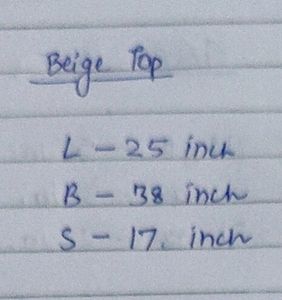 Beige Top
L - 25 inch
B - 38 inch
S - 17. inch